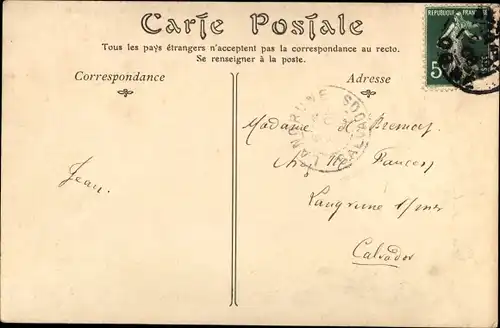 Carte Postale
Tous les pays étrangers n'acceptent pas la correspondance au recto.
Se renseigner à la poste.
Correspondance
Adresse
REPUBLIQUE FRANÇAISE
5
LANGRUNE
CALVADOS
Madame
Jean.
Langrune s/mer
Calvados